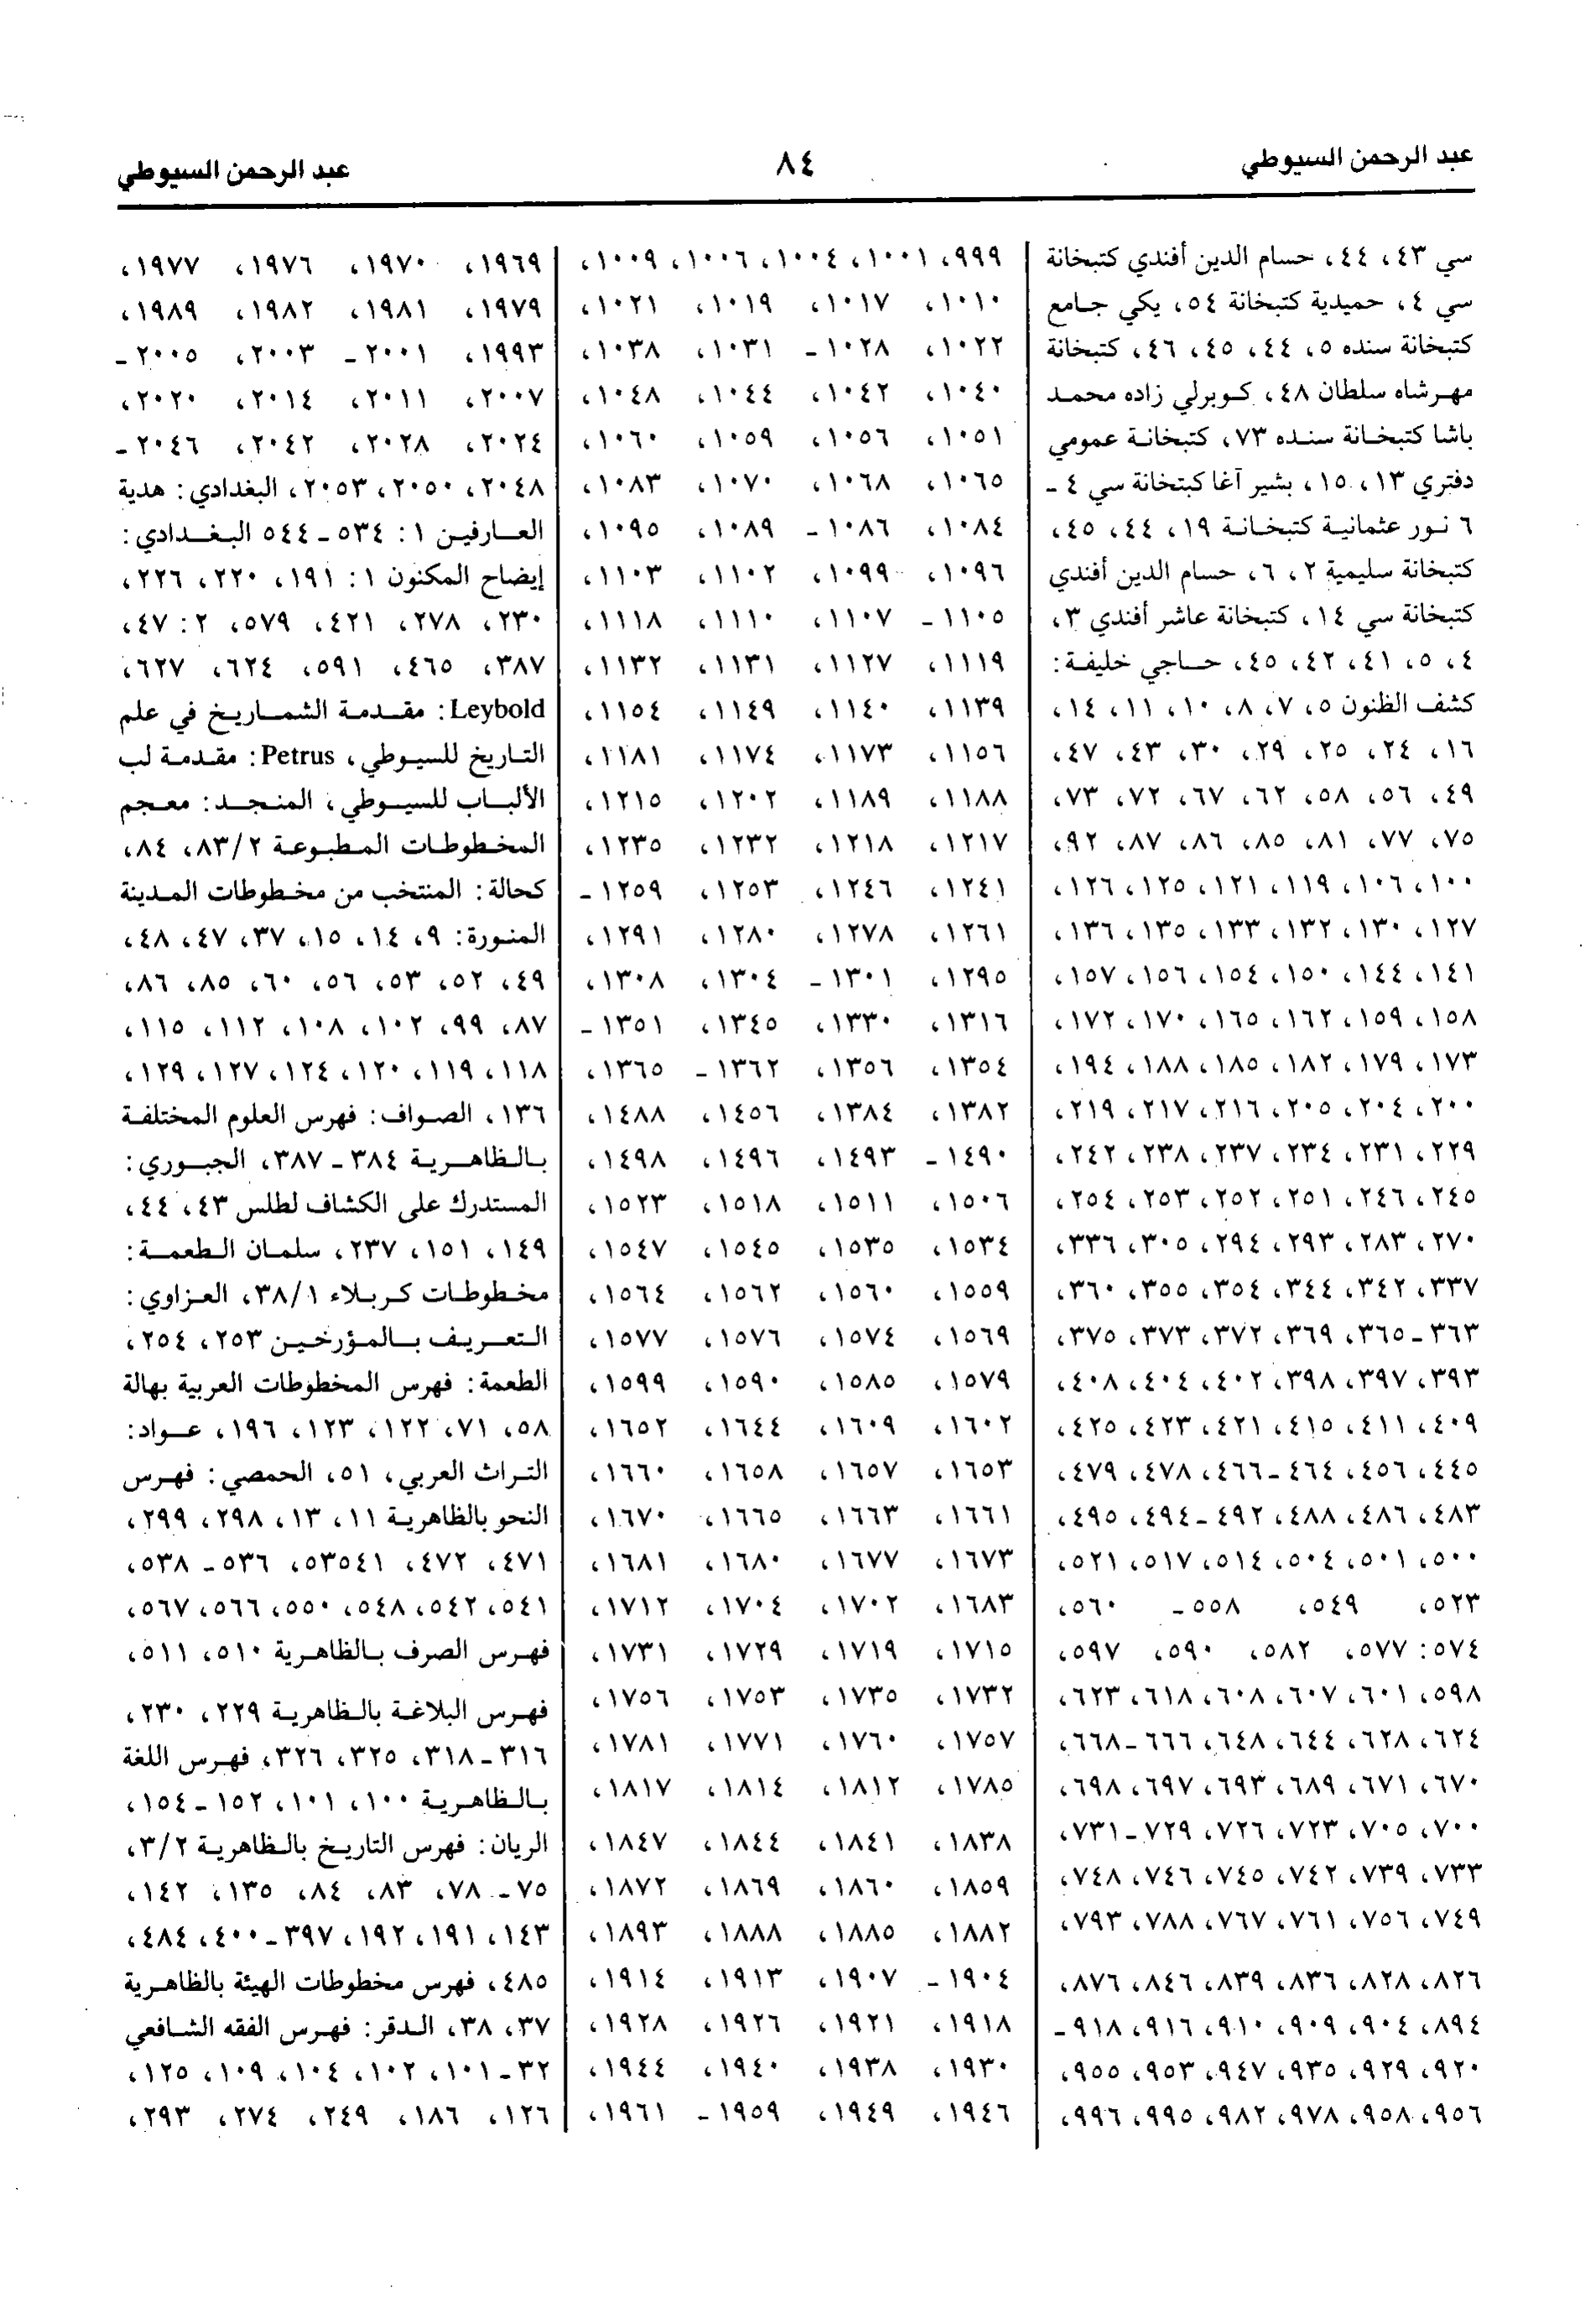 عبد الرحمن السيوطي ٨٤ عبد الرحمن السيوطي
سي ٤٣، ٤٤، حسام الدين أفندي كتبخانة
سي ٤، حميدية كتبخانة ٥٤، يكي جامع
كتبخانة سنده ٥، ٤٤، ٤٥، ٤٦، كتبخانة
مهرشاه سلطان ٤٨، كوبرلي زاده محمد
باشا كتبخانة سنده ٧٣، كتبخانة عمومي
دفتري ١٣، ١٥، بشير آغا كبتخانة سي ٤ -
٦ نور عثمانية كتبخانة ١٩، ٤٤، ٤٥،
كتبخانة سليمية ٢، ٦، حسام الدين أفندي
كتبخانة سي ١٤، كتبخانة عاشر أفندي ٣،
٤، ٥، ٤١، ٤٢، ٤٥، حاجي خليفة:
كشف الظنون ٥، ٧، ٨، ١٠، ١١، ١٤،
١٦، ٢٤، ٢٥، ٢٩، ٣٠، ٤٣، ٤٧،
٤٩، ٥٦، ٥٨، ٦٢، ٦٧، ٧٢، ٧٣،
٧٥، ٧٧، ٨١، ٨٥، ٨٦، ٨٧، ٩٢،
١٠٠، ١٠٦، ١١٩، ١٢١، ١٢٥، ١٢٦،
١٢٧، ١٣٠، ١٣٢، ١٣٣، ١٣٥، ١٣٦،
١٤١، ١٤٤، ١٥٠، ١٥٤، ١٥٦، ١٥٧،
١٥٨، ١٥٩، ١٦٢، ١٦٥، ١٧٠، ١٧٢،
١٧٣، ١٧٩، ١٨٢، ١٨٥، ١٨٨، ١٩٤،
٢٠٠، ٢٠٤، ٢٠٥، ٢١٦، ٢١٧، ٢١٩،
٢٢٩، ٢٣١، ٢٣٤، ٢٣٧، ٢٣٨، ٢٤٢،
٢٤٥، ٢٤٦، ٢٥١، ٢٥٢، ٢٥٣، ٢٥٤،
٢٧٠، ٢٨٣، ٢٩٣، ٢٩٤، ٣٠٥، ٣٣٦،
٣٣٧، ٣٤٢، ٣٤٤، ٣٥٤، ٣٥٥، ٣٦٠،
٣٦٣ - ٣٦٥، ٣٦٩، ٣٧٢، ٣٧٣، ٣٧٥،
٣٩٣، ٣٩٧، ٣٩٨، ٤٠٢، ٤٠٤، ٤٠٨،
٤٠٩، ٤١١، ٤١٥، ٤٢١، ٤٢٣، ٤٢٥،
٤٤٥، ٤٥٦، ٤٦٤ - ٤٦٦، ٤٧٨، ٤٧٩،
٤٨٣، ٤٨٦، ٤٨٨، ٤٩٢ - ٤٩٤، ٤٩٥،
٥٠٠، ٥٠١، ٥٠٤، ٥١٤، ٥١٧، ٥٢١،
٥٢٣، ٥٤٩، ٥٥٨ - ٥٦٠،
٥٧٤: ٥٧٧، ٥٨٢، ٥٩٠، ٥٩٧،
٥٩٨، ٦٠١، ٦٠٧، ٦٠٨، ٦١٨، ٦٢٣،
٦٢٤، ٦٢٨، ٦٤٤، ٦٤٨، ٦٦٦ - ٦٦٨،
٦٧٠، ٦٧١، ٦٨٩، ٦٩٣، ٦٩٧، ٦٩٨،
٧٠٠، ٧٠٥، ٧٢٣، ٧٢٦، ٧٢٩ - ٧٣١،
٧٣٣، ٧٣٩، ٧٤٢، ٧٤٥، ٧٤٦، ٧٤٨،
٧٤٩، ٧٥٦، ٧٦١، ٧٦٧، ٧٨٨، ٧٩٣،
٨٢٦، ٨٢٨، ٨٣٦، ٨٣٩، ٨٤٦، ٨٧٦،
٨٩٤، ٩٠٤، ٩٠٩، ٩١٠، ٩١٦، ٩١٨ -
٩٢٠، ٩٢٩، ٩٣٥، ٩٤٧، ٩٥٣، ٩٥٥،
٩٥٦، ٩٥٨، ٩٧٨، ٩٨٢، ٩٩٥، ٩٩٦،
٩٩٩، ١٠٠١، ١٠٠٤، ١٠٠٦، ١٠٠٩،
١٠١٠، ١٠١٧، ١٠١٩، ١٠٢١،
١٠٢٢، ١٠٢٨ - ١٠٣١، ١٠٣٨،
١٠٤٠، ١٠٤٢، ١٠٤٤، ١٠٤٨،
١٠٥١، ١٠٥٦، ١٠٥٩، ١٠٦٠،
١٠٦٥، ١٠٦٨، ١٠٧٠، ١٠٨٣،
١٠٨٤، ١٠٨٦ - ١٠٨٩، ١٠٩٥،
١٠٩٦، ١٠٩٩، ١١٠٢، ١١٠٣،
١١٠٥ - ١١٠٧، ١١١٠، ١١١٨،
١١١٩، ١١٢٧، ١١٣١، ١١٣٢،
١١٣٩، ١١٤٠، ١١٤٩، ١١٥٤،
١١٥٦، ١١٧٣، ١١٧٤، ١١٨١،
١١٨٨، ١١٨٩، ١٢٠٢، ١٢١٥،
١٢١٧، ١٢١٨، ١٢٣٢، ١٢٣٥،
١٢٤١، ١٢٤٦، ١٢٥٣، ١٢٥٩ -
١٢٦١، ١٢٧٨، ١٢٨٠، ١٢٩١،
١٢٩٥، ١٣٠١ - ١٣٠٤، ١٣٠٨،
١٣١٦، ١٣٣٠، ١٣٤٥، ١٣٥١ -
١٣٥٤، ١٣٥٦، ١٣٦٢ - ١٣٦٥،
١٣٨٢، ١٣٨٤، ١٤٥٦، ١٤٨٨،
١٤٩٠ - ١٤٩٣، ١٤٩٦، ١٤٩٨،
١٥٠٦، ١٥١١، ١٥١٨، ١٥٢٣،
١٥٣٤، ١٥٣٥، ١٥٤٥، ١٥٤٧،
١٥٥٩، ١٥٦٠، ١٥٦٢، ١٥٦٤،
١٥٦٩، ١٥٧٤، ١٥٧٦، ١٥٧٧،
١٥٧٩، ١٥٨٥، ١٥٩٠، ١٥٩٩،
١٦٠٢، ١٦٠٩، ١٦٤٤، ١٦٥٢،
١٦٥٣، ١٦٥٧، ١٦٥٨، ١٦٦٠،
١٦٦١، ١٦٦٣، ١٦٦٥، ١٦٧٠،
١٦٧٣، ١٦٧٧، ١٦٨٠، ١٦٨١،
١٦٨٣، ١٧٠٢، ١٧٠٤، ١٧١٢،
١٧١٥، ١٧١٩، ١٧٢٩، ١٧٣١،
١٧٣٢، ١٧٣٥، ١٧٥٣، ١٧٥٦،
١٧٥٧، ١٧٦٠، ١٧٧١، ١٧٨١،
١٧٨٥، ١٨١٢، ١٨١٤، ١٨١٧،
١٨٣٨، ١٨٤١، ١٨٤٤، ١٨٤٧،
١٨٥٩، ١٨٦٠، ١٨٦٩، ١٨٧٢،
١٨٨٢، ١٨٨٥، ١٨٨٨، ١٨٩٣،
١٩٠٤ - ١٩٠٧، ١٩١٣، ١٩١٤،
١٩١٨، ١٩٢١، ١٩٢٦، ١٩٢٨،
١٩٣٠، ١٩٣٨، ١٩٤٠، ١٩٤٤،
١٩٤٦، ١٩٤٩، ١٩٥٩ - ١٩٦١،
١٩٦٩، ١٩٧٠، ١٩٧٦، ١٩٧٧،
١٩٧٩، ١٩٨١، ١٩٨٢، ١٩٨٩،
١٩٩٣، ٢٠٠١ - ٢٠٠٣، ٢٠٠٥ -
٢٠٠٧، ٢٠١١، ٢٠١٤، ٢٠٢٠،
٢٠٢٤، ٢٠٢٨، ٢٠٤٢، ٢٠٤٦ -
٢٠٤٨، ٢٠٥٠، ٢٠٥٣، البغدادي: هدية
العارفين ١: ٥٣٤ - ٥٤٤ البغدادي:
إيضاح المكنون ١: ١٩١، ٢٢٠، ٢٢٦،
٢٣٠، ٢٧٨، ٤٢١، ٥٧٩، ٢: ٤٧،
٣٨٧، ٤٦٥، ٥٩١، ٦٢٤، ٦٢٧،
Leybold: مقدمة الشماريخ في علم
التاريخ للسيوطي، Petrus: مقدمة لب
الألباب للسيوطي، المنجد: معجم
المخطوطات المطبوعة ٨٣/٢، ٨٤،
كحالة: المنتخب من مخطوطات المدينة
المنورة: ٩، ١٤، ١٥، ٣٧، ٤٧، ٤٨،
٤٩، ٥٢، ٥٣، ٥٦، ٦٠، ٨٥، ٨٦،
٨٧، ٩٩، ١٠٢، ١٠٨، ١١٢، ١١٥،
١١٨، ١١٩، ١٢٠، ١٢٤، ١٢٧، ١٢٩،
١٣٦، الصواف: فهرس العلوم المختلفة
بالظاهرية ٣٨٤ - ٣٨٧، الجبوري:
المستدرك على الكشاف لطلس ٤٣، ٤٤،
١٤٩، ١٥١، ٢٣٧، سلمان الطعمة:
مخطوطات كربلاء ٣٨/١، العزاوي:
التعريف بالمؤرخين ٢٥٣، ٢٥٤،
الطعمة: فهرس المخطوطات العربية بهالة
٥٨، ٧١، ١٢٢، ١٢٣، ١٩٦، عواد:
التراث العربي، ٥١، الحمصي: فهرس
النحو بالظاهرية ١١، ١٣، ٢٩٨، ٢٩٩،
٤٧١، ٤٧٢، ٥٣٥٤١، ٥٣٦ - ٥٣٨،
٥٤١، ٥٤٢، ٥٤٨، ٥٥٠، ٥٦٦، ٥٦٧،
فهرس الصرف بالظاهرية ٥١٠، ٥١١،
فهرس البلاغة بالظاهرية ٢٢٩، ٢٣٠،
٣١٦ - ٣١٨، ٣٢٥، ٣٢٦، فهرس اللغة
بالظاهرية ١٠٠، ١٠١، ١٥٢ - ١٥٤،
الريان: فهرس التاريخ بالظاهرية ٣/٢،
٧٥ - ٧٨، ٨٣، ٨٤، ١٣٥، ١٤٢،
١٤٣، ١٩١، ١٩٢، ٣٩٧ - ٤٠٠، ٤٨٤،
٤٨٥، فهرس مخطوطات الهيئة بالظاهرية
٣٧، ٣٨، الدقر: فهرس الفقه الشافعي
٣٢ - ١٠١، ١٠٢، ١٠٤، ١٠٩، ١٢٥،
١٢٦، ١٨٦، ٢٤٩، ٢٧٤، ٢٩٣،